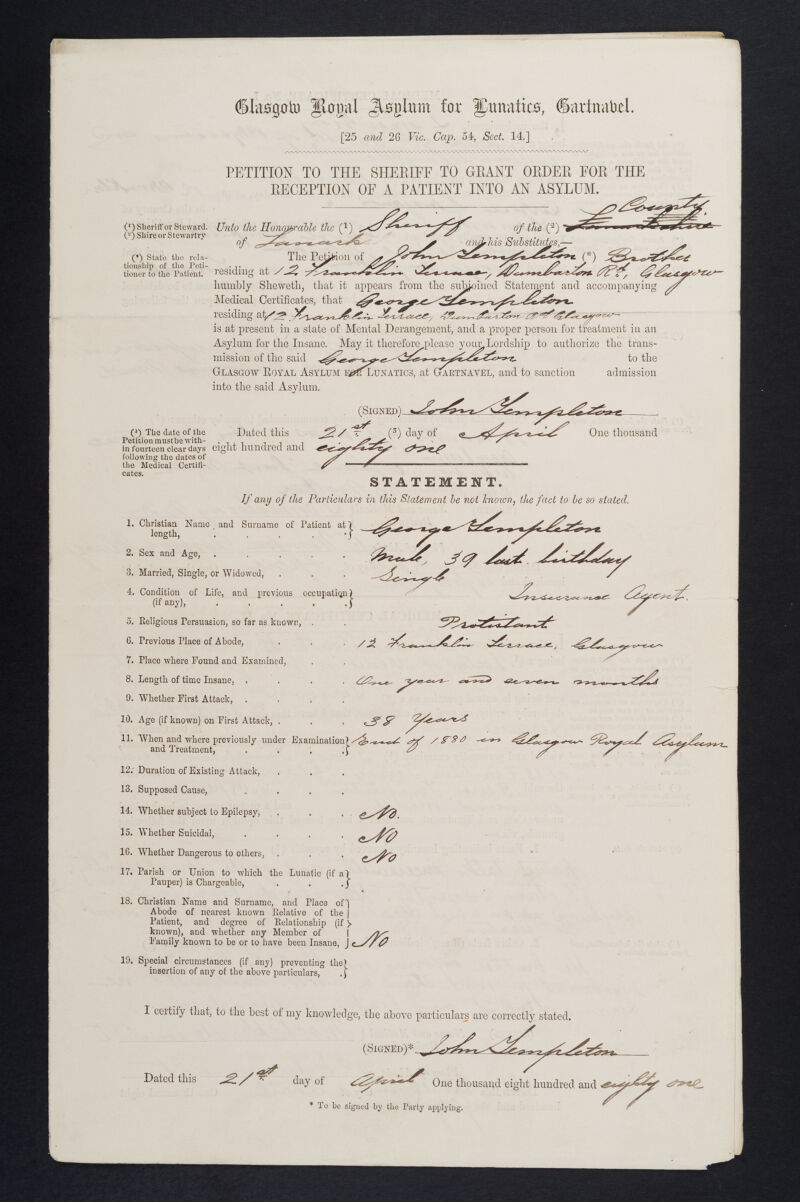 Glasgow Royal Asylum for Lunatics, Gartnabel.
[25 and 26 Vic. Cap. 54, Sect. 14.]
PETITION TO THE SHERIFF TO GRANT ORDER FOR THE
RECEPTION OF A PATIENT INTO AN ASYLUM.
(¹) Sheriff or Steward.
(²) Shire or Stewartry
Unto the Honourable the (¹) Sheriff of the (²) Lanarkshire County
of Lanark and his Substitutes,—
(⁴) State the rela-
tionship of the Peti-
tioner to the Patient.
The Petition of John Templeton (⁴) Brother
residing at 12 Franklin Terrace, Dumbarton Rd, Glasgow
humbly Sheweth, that it appears from the subjoined Statement and accompanying
Medical Certificates, that George Templeton
residing at 12 Franklin Terrace, Dumbarton Rd Glasgow
is at present in a state of Mental Derangement, and a proper person for treatment in an
Asylum for the Insane. May it therefore please your Lordship to authorize the trans-
mission of the said George Templeton to the
GLASGOW ROYAL ASYLUM FOR LUNATICS, at GARTNAVEL, and to sanction admission
into the said Asylum.
(SIGNED) John Templeton
(³) The date of the
Petition must be with-
in fourteen clear days
following the dates of
the Medical Certifi-
cates.
Dated this 21st (³) day of April One thousand
eight hundred and eighty one
STATEMENT.
If any of the Particulars in this Statement be not known, the fact to be so stated.
1. Christian Name and Surname of Patient at
length, George Templeton
2. Sex and Age, Male, 39 last birthday
3. Married, Single, or Widowed, Single
4. Condition of Life, and previous occupation
(if any), Insurance Agent.
5. Religious Persuasion, so far as known, Protestant
6. Previous Place of Abode, 12 Franklin Terrace, Glasgow
7. Place where Found and Examined,
8. Length of time Insane, One year and seven months
9. Whether First Attack,
10. Age (if known) on First Attack, 38 Years
11. When and where previously under Examination
and Treatment, End of 1880 in Glasgow Royal Asylum
12. Duration of Existing Attack,
13. Supposed Cause,
14. Whether subject to Epilepsy, No.
15. Whether Suicidal, No
16. Whether Dangerous to others, No
17. Parish or Union to which the Lunatic (if a
Pauper) is Chargeable,
18. Christian Name and Surname, and Place of
Abode of nearest known Relative of the
Patient, and degree of Relationship (if
known), and whether any Member of
Family known to be or to have been Insane, No
19. Special circumstances (if any) preventing the
insertion of any of the above particulars,
I certify that, to the best of my knowledge, the above particulars are correctly stated.
(SIGNED)* John Templeton
Dated this 21st day of April One thousand eight hundred and eighty one
* To be signed by the Party applying.